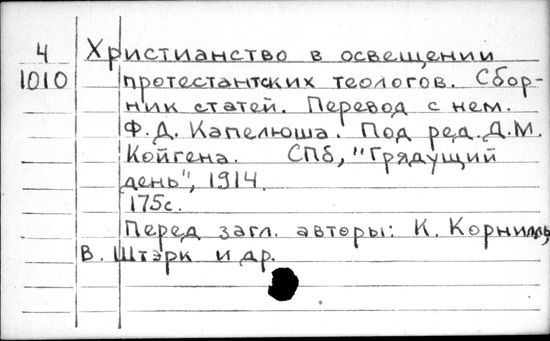 4 Христианство в освещении
1010 протестантских теологов. Сбор-
ник статей. Перевод с нем.
Ф.Д. Капелюша. Под ред. Д.М.
Койгена. СПб, "Грядущий
день", 1914.
175с.
Перед загл. авторы: К. Корнилль,
В. Штэрк и др.